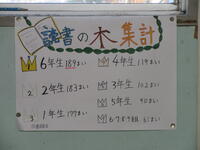 読書の木集計
1 6年生 189まい
2 2年生 183まい
3 1年生 177まい
4年生 119まい
3年生 102まい
5年生 90まい
6・7・8・9組 61まい